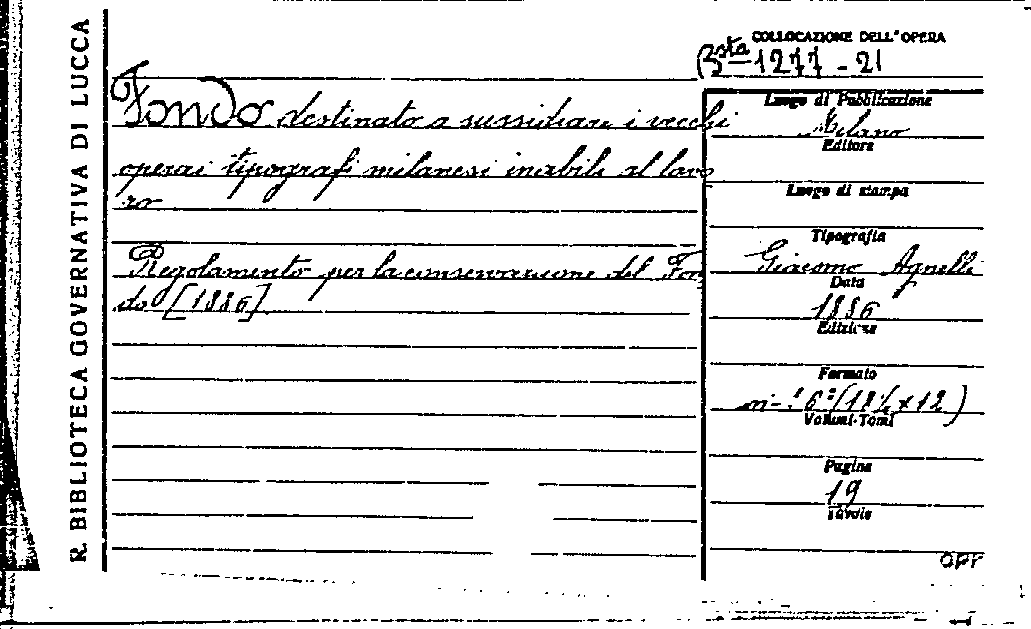 R. BIBLIOTECA GOVERNATIVA DI LUCCA
COLLOCAZIONE DELL'OPERA
Bsta 1277 - 21
Fondo destinato a sussidiare i vecchi
operai tipografi milanesi inabili al lavo
ro
Regolamento per la conservazione del Fon
do [1886]
Luogo di Pubblicazione
Milano
Editore
Luogo di stampa
Tipografia
Giacomo Agnelli
Data
1886
Edizione
Formato
in-16° (18½ x 12)
Volumi-Tomi
Pagine
19
Tavole
opr